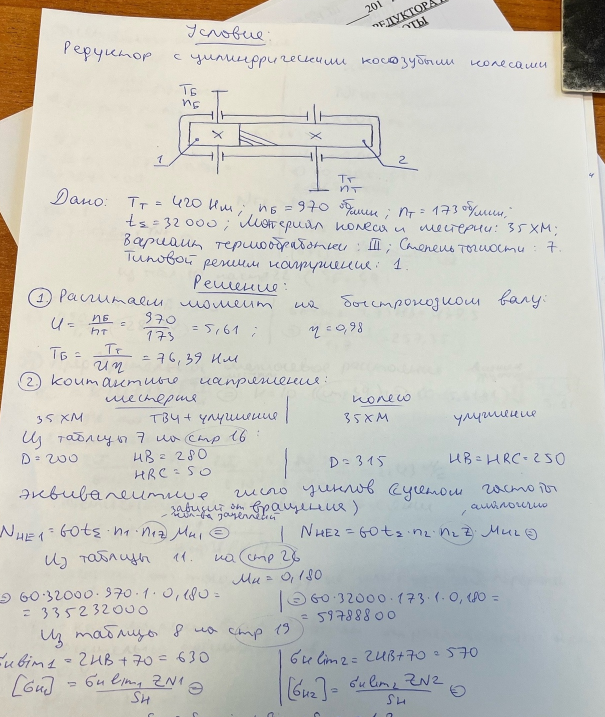 201
РЕДУКТОРА
Условие:
Редуктор с цилиндрическими косозубыми колесами
Tб
nб
1
2
Tт
nт
Дано: Tт = 420 Нм; nб = 970 об/мин; nт = 173 об/мин;
tΣ = 32000; Материал колеса и шестерни: 35ХМ;
Вариант термообработки: III; Степень точности: 7.
Типовой режим нагружение: 1.
Решение:
① Расчитаем момент на быстроходном валу:
U = nб/nт = 970/173 = 5,61; η = 0,98
Tб = Tт/Uη = 76,39 Нм
② Контактные напряжения:
шестерня | колесо
35ХМ ТВЧ + улучшение | 35ХМ улучшение
Из таблицы 7 на стр 16:
D = 200 HB = 280 | D = 315 HB = HRC = 250
HRC = 50
Эквивалентное число циклов (с учетом частоты
вращения)
зависит от
зацеплений
, аналогично
NHE1 = 60tΣ · n1 · n1z · MH1 = | NHE2 = 60tΣ · n2 · n2z · MH2 =
Из таблицы 11. на стр 26
MH = 0,180
= 60·32000·970·1·0,180 = | = 60·32000·173·1·0,180 =
= 335232000 | = 59788800
Из таблицы 8 на стр 19
σH lim1 = 2HB + 70 = 630 | σH lim2 = 2HB + 70 = 570
[σH1] = σH lim1 ZN1/SH = | [σH2] = σH lim2 ZN2/SH =